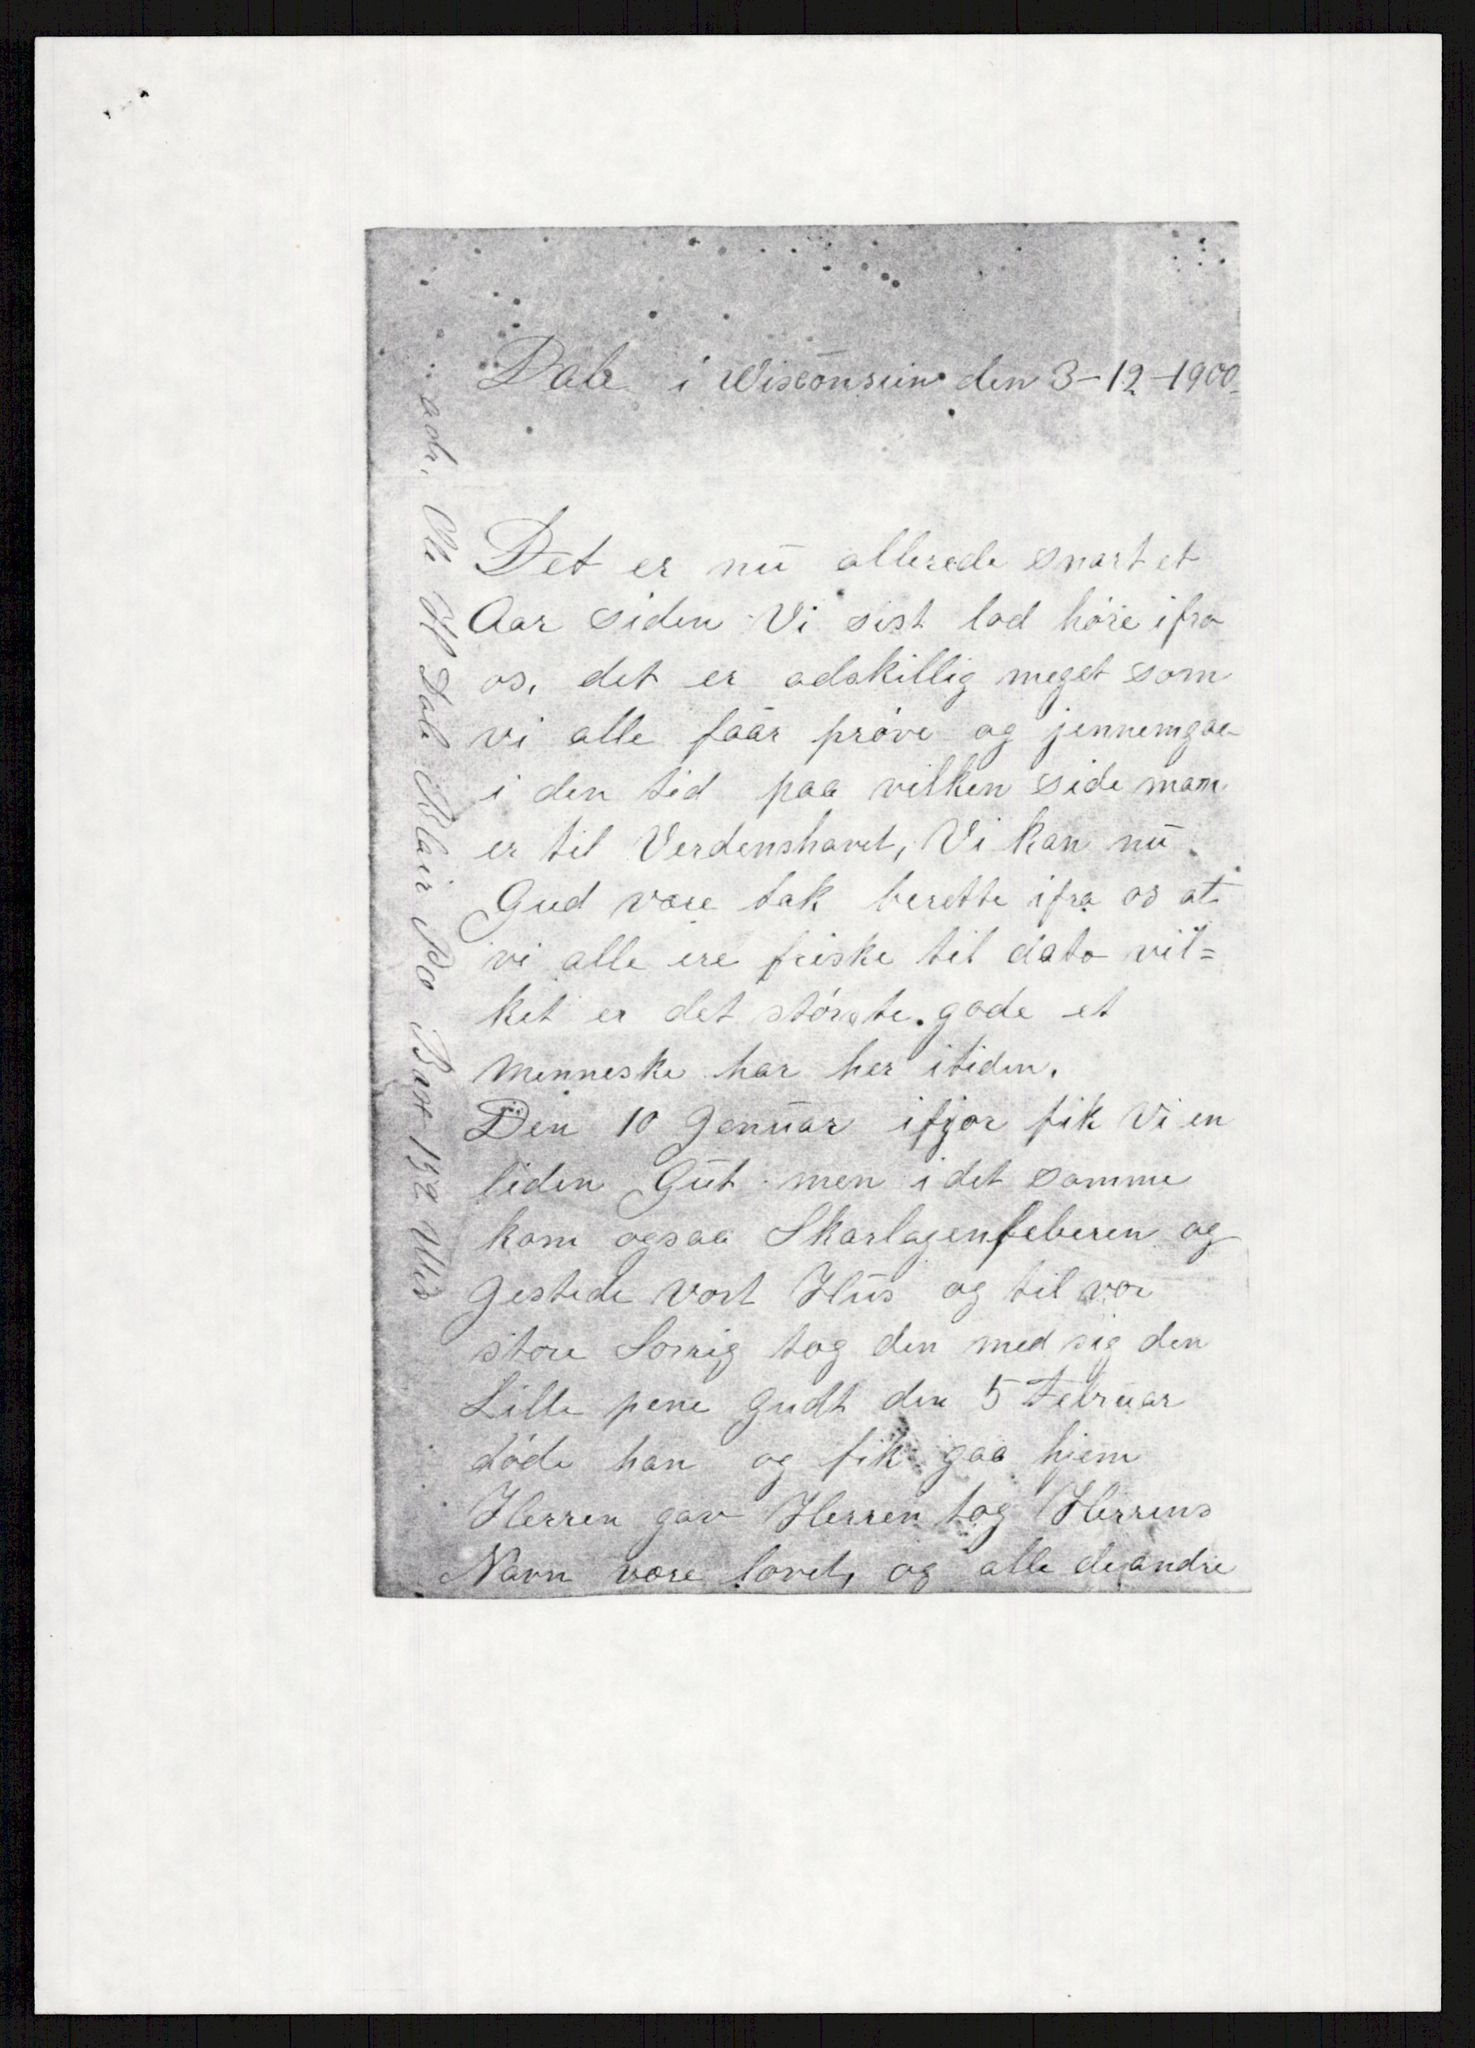 Dale i Wisconsin den 3-12-1900
Det er nū allerede snart et
Aar siden Vi sist lod høre ifra
os, det er adskillig meget som
vi alle faar prøve og jennemgaa
i den tid paa vilken side man
er til Verdenshavet, Vi kan nū
Gud være tak berette ifra os at
vi alle ere friske til dato vil=
ket er det største gode et
menneske har her itiden.
Den 10 Jenūar ifjor fik Vi en
liden Gūt men i det samme
kom ogsaa Skarlagenfeberen og
gestede vort Hūs og til vor
store Sorrig tog den med sig den
Lille pene gudt den 5 Febrūar
døde han og fik gaa hjem
Herren gav Herren tog Herrens
Navn være lovet, og alle de andre
adr. Ole H Dale Blair PO Box 192 Wis